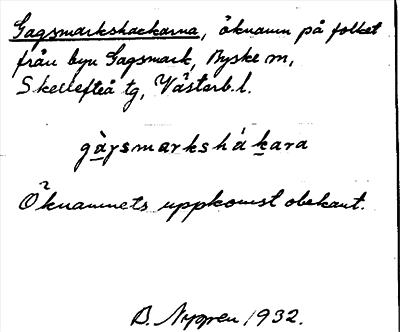 Gagsmarkshackarna, öknamn på folket
från byn Gagsmark, Byske sn,
Skellefteå tg, Västerb. l.
gàgsmarkshákara
Öknamnets uppkomst obekant.
B. Nygren 1932.